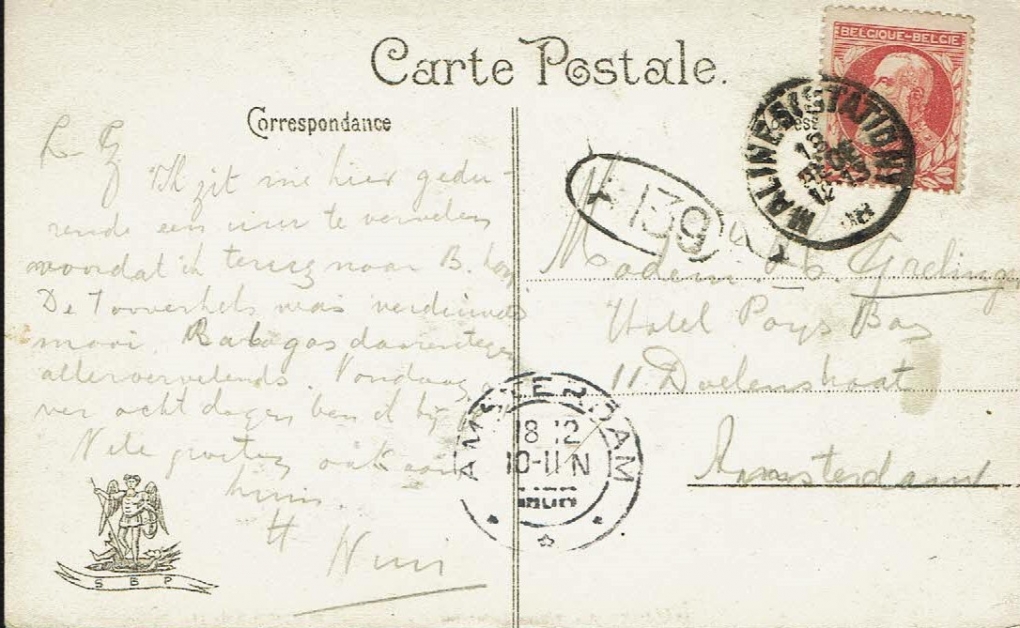 Carte Postale.
BELGIQUE-BELGIE
Correspondance
MALINES (STATION)
18
12-13
139
L.
Ik zit me hier gedu-
rende een uur te vervelen
voordat ik terug naar B. kom
De was verdiend
mooi. daarentegen
allervervelends. Vandaag o-
ver acht dagen ben ik bij
Vele groeten ook aan
huis.
H
Madem
Hotel Pays Bas
11 Doelenstraat
Amsterdam
AMSTERDAM
18 12
10-11 N
S B P